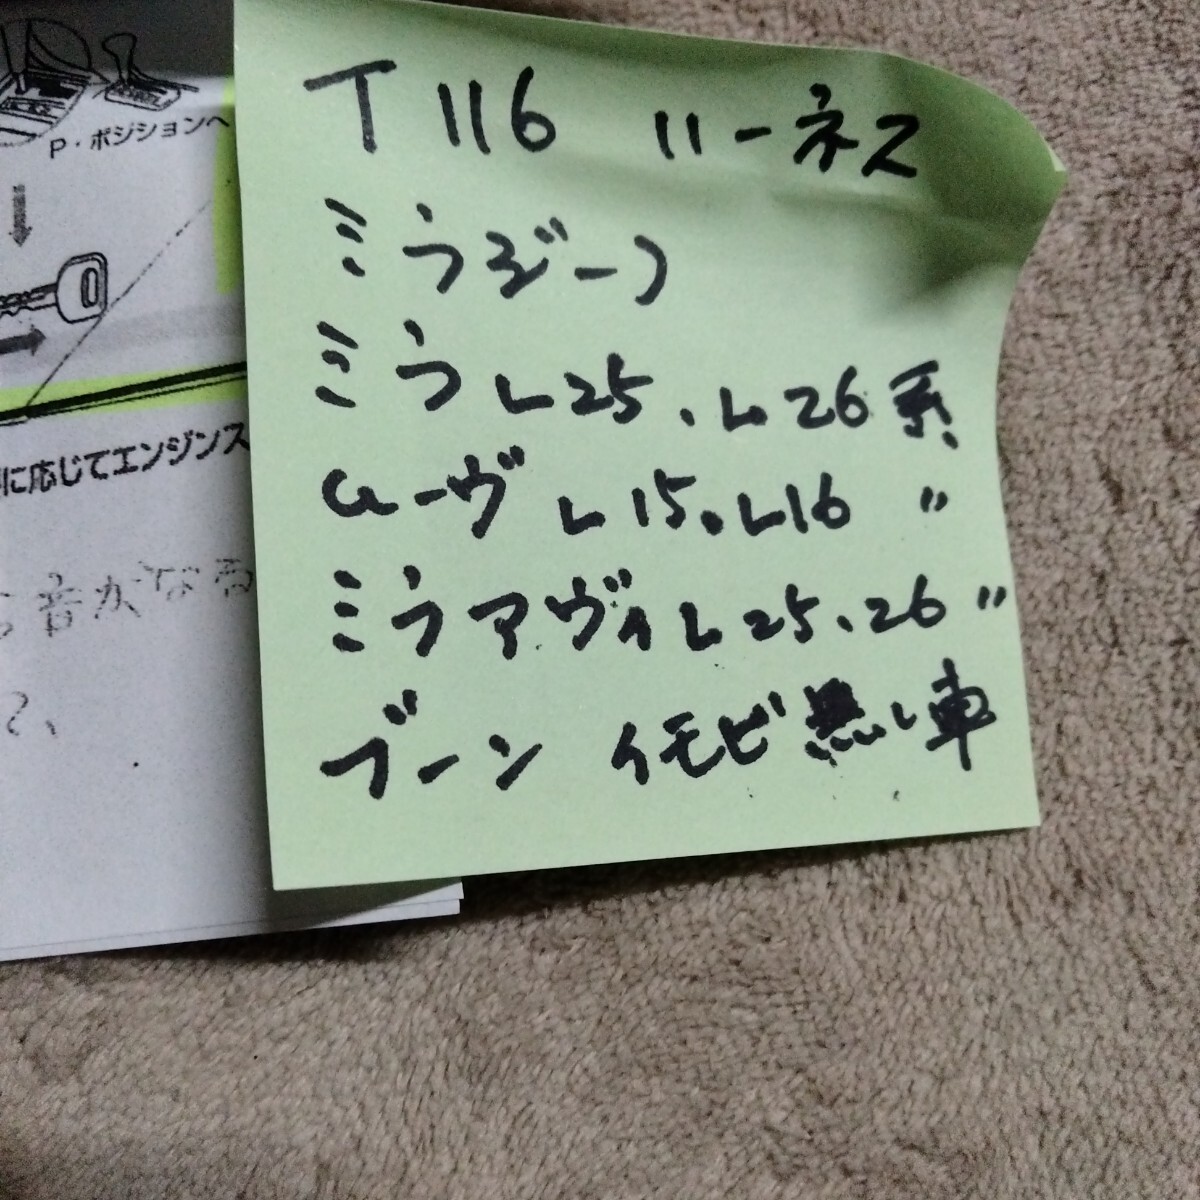 T116 ハーネス
ミラジーノ
ミラ L25、L26 系
ムーヴ L15、L16 〃
ミラアヴィ L25、26 〃
ブーン イモビ無し車
P・ポジションへ
に応じてエンジンス
音がなる